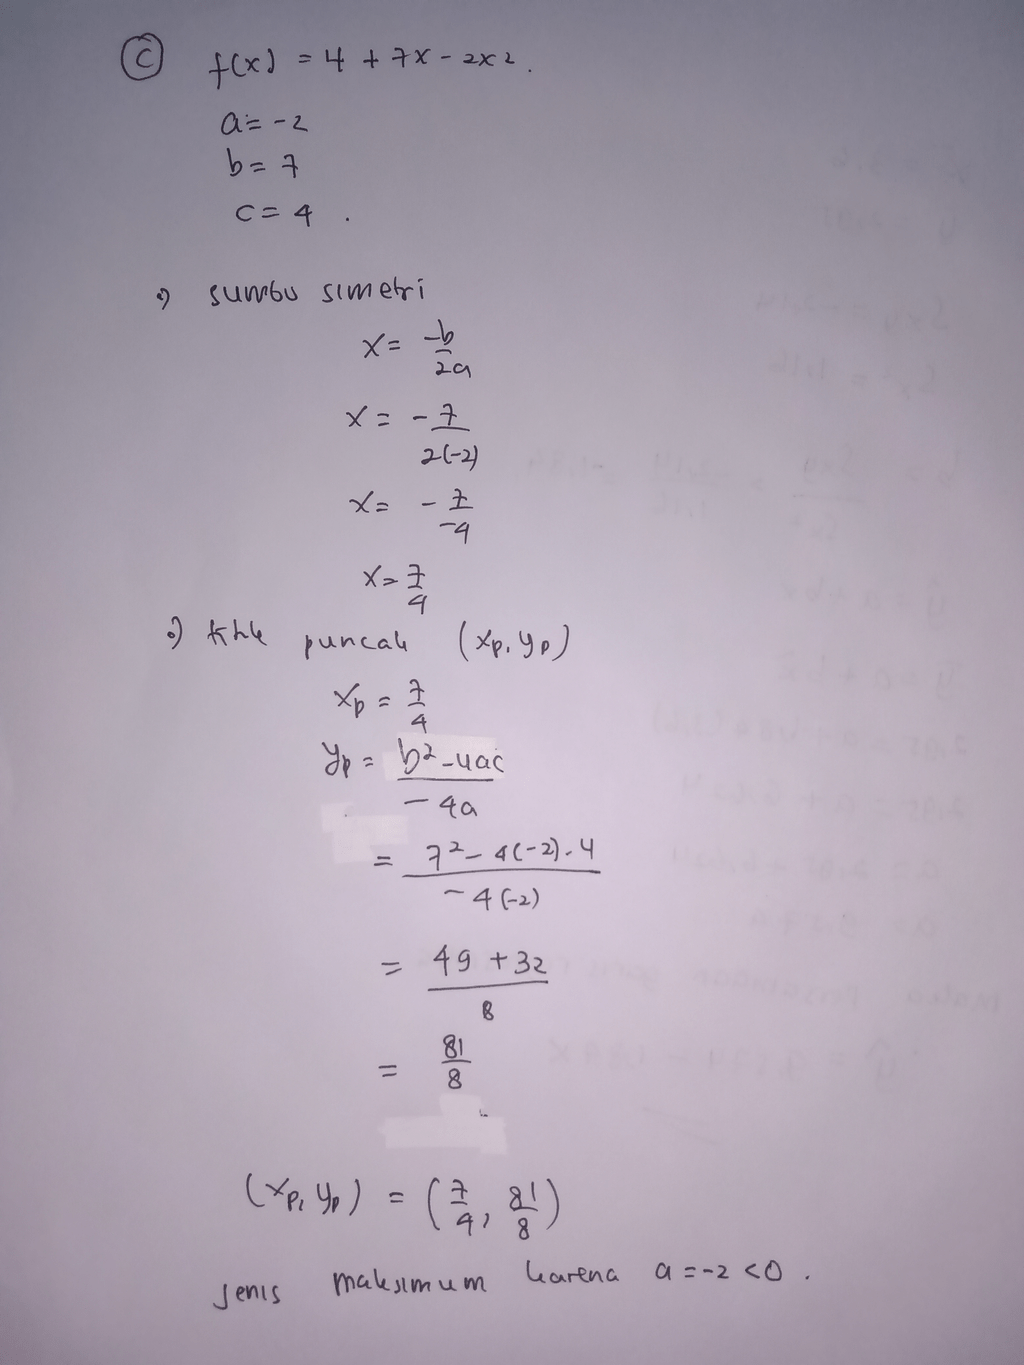 c f(x) = 4 + 7x - 2x2.
a = -2
b = 7
c = 4 .
sumbu simetri
x = -b
2a
x = - 7
2(-2)
x = - 7
-4
x = 7
4
titik puncak (xp, yp)
xp = 7
4
yp = b2 - 4ac
- 4a
= 7² - 4(-2).4
- 4(-2)
= 49 + 32
8
= 81
8
(xp, yp) = (7/4, 81/8)
Jenis maksimum karena a = -2 < 0 .